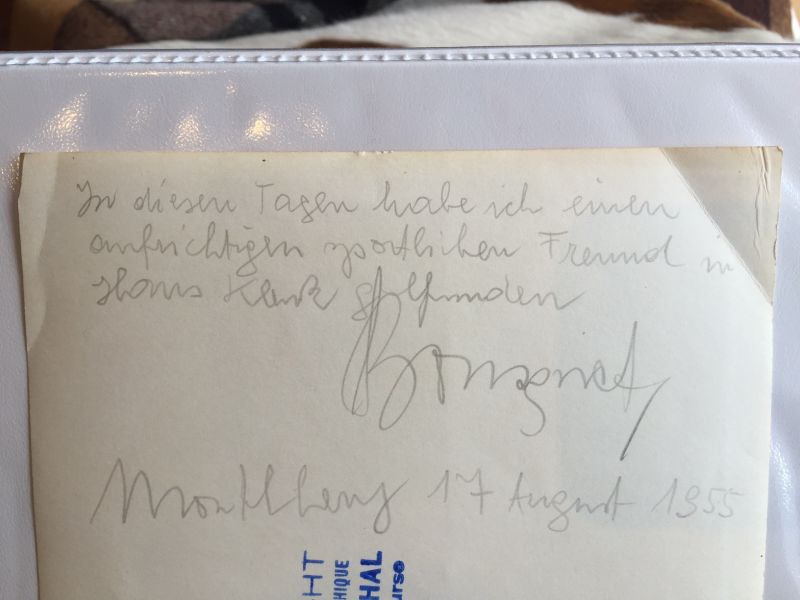 In diesen Tagen habe ich einen
aufrichtigen sportlichen Freund in
Hans gefunden
Montlhery 17 August 1955
HT
HIQUE
HAL
urse